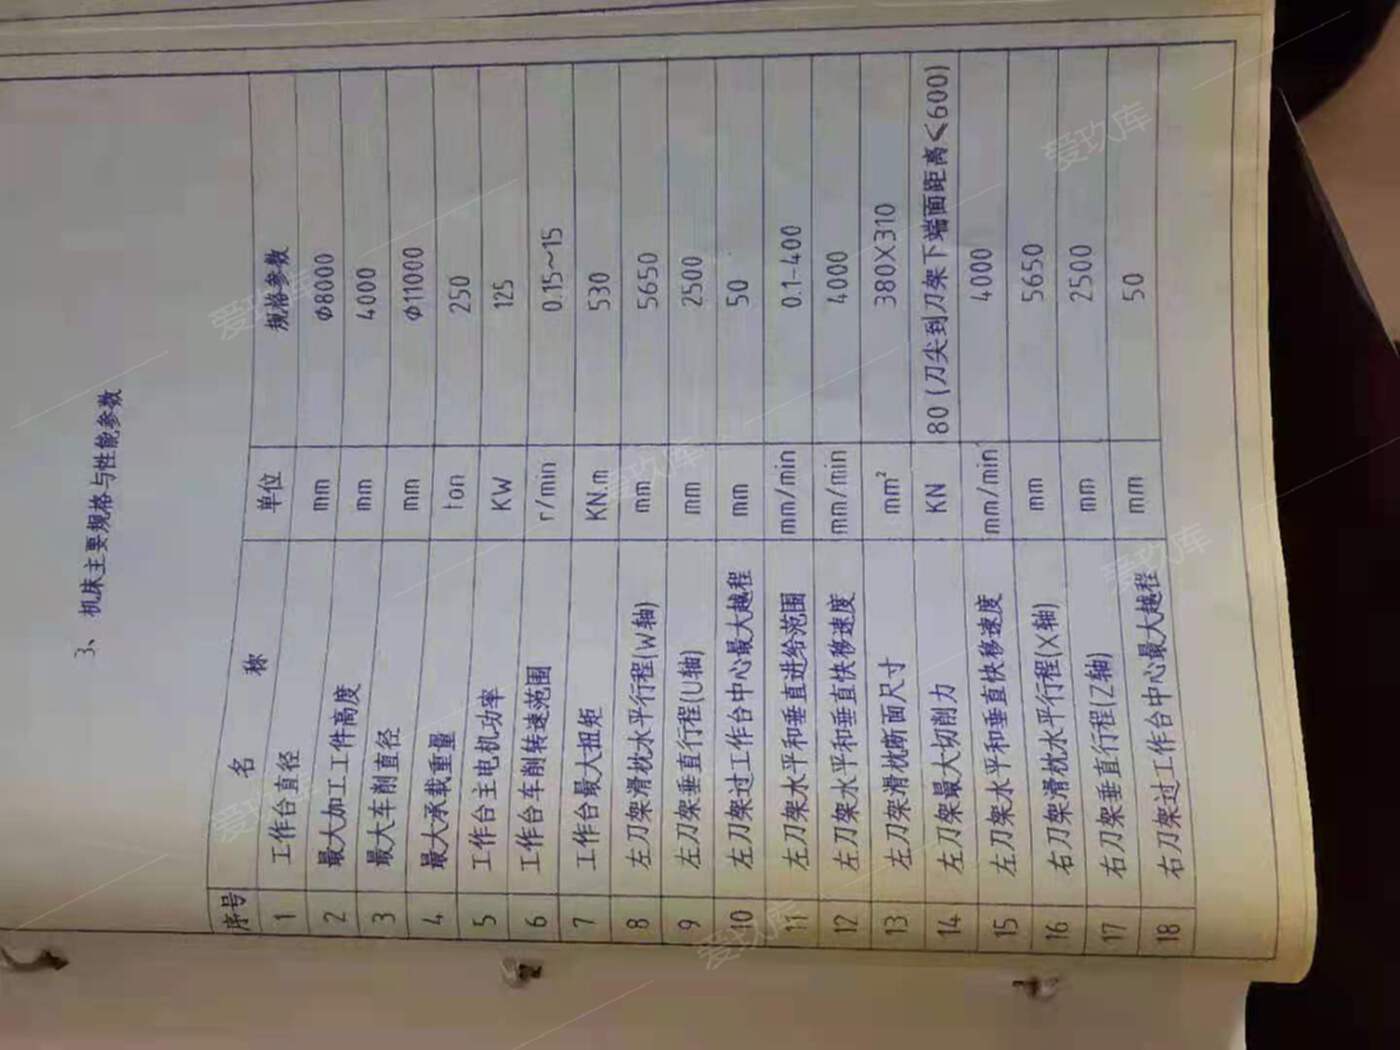 3、机床主要规格与性能参数
序号 名 称 单位 规格参数
1 工作台直径 mm Φ8000
2 最大加工工件高度 mm 4000
3 最大车削直径 mm Φ11000
4 最大承载重量 ton 250
5 工作台主电机功率 KW 125
6 工作台车削转速范围 r/min 0.15~15
7 工作台最大扭矩 KN.m 530
8 左刀架滑枕水平行程(W轴) mm 5650
9 左刀架垂直行程(U轴) mm 2500
10 左刀架过工作台中心最大越程 mm 50
11 左刀架水平和垂直进给范围 mm/min 0.1-400
12 左刀架水平和垂直快移速度 mm/min 4000
13 左刀架滑枕断面尺寸 mm² 380X310
14 左刀架最大切削力 KN 80(刀尖到刀架下端面距离≤600)
15 左刀架水平和垂直快移速度 mm/min 4000
16 右刀架滑枕水平行程(X轴) mm 5650
17 右刀架垂直行程(Z轴) mm 2500
18 右刀架过工作台中心最大越程 mm 50
爱玖库
爱玖库
爱玖库
爱玖库
爱玖库
爱玖库